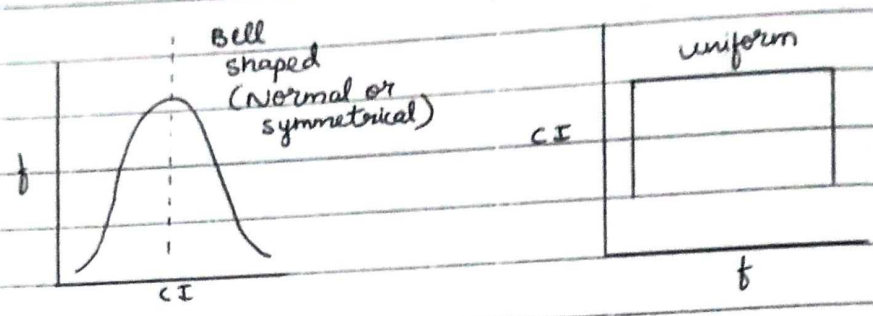 Bell
shaped
(Normal or
symmetrical)
f
CI
uniform
CI
f